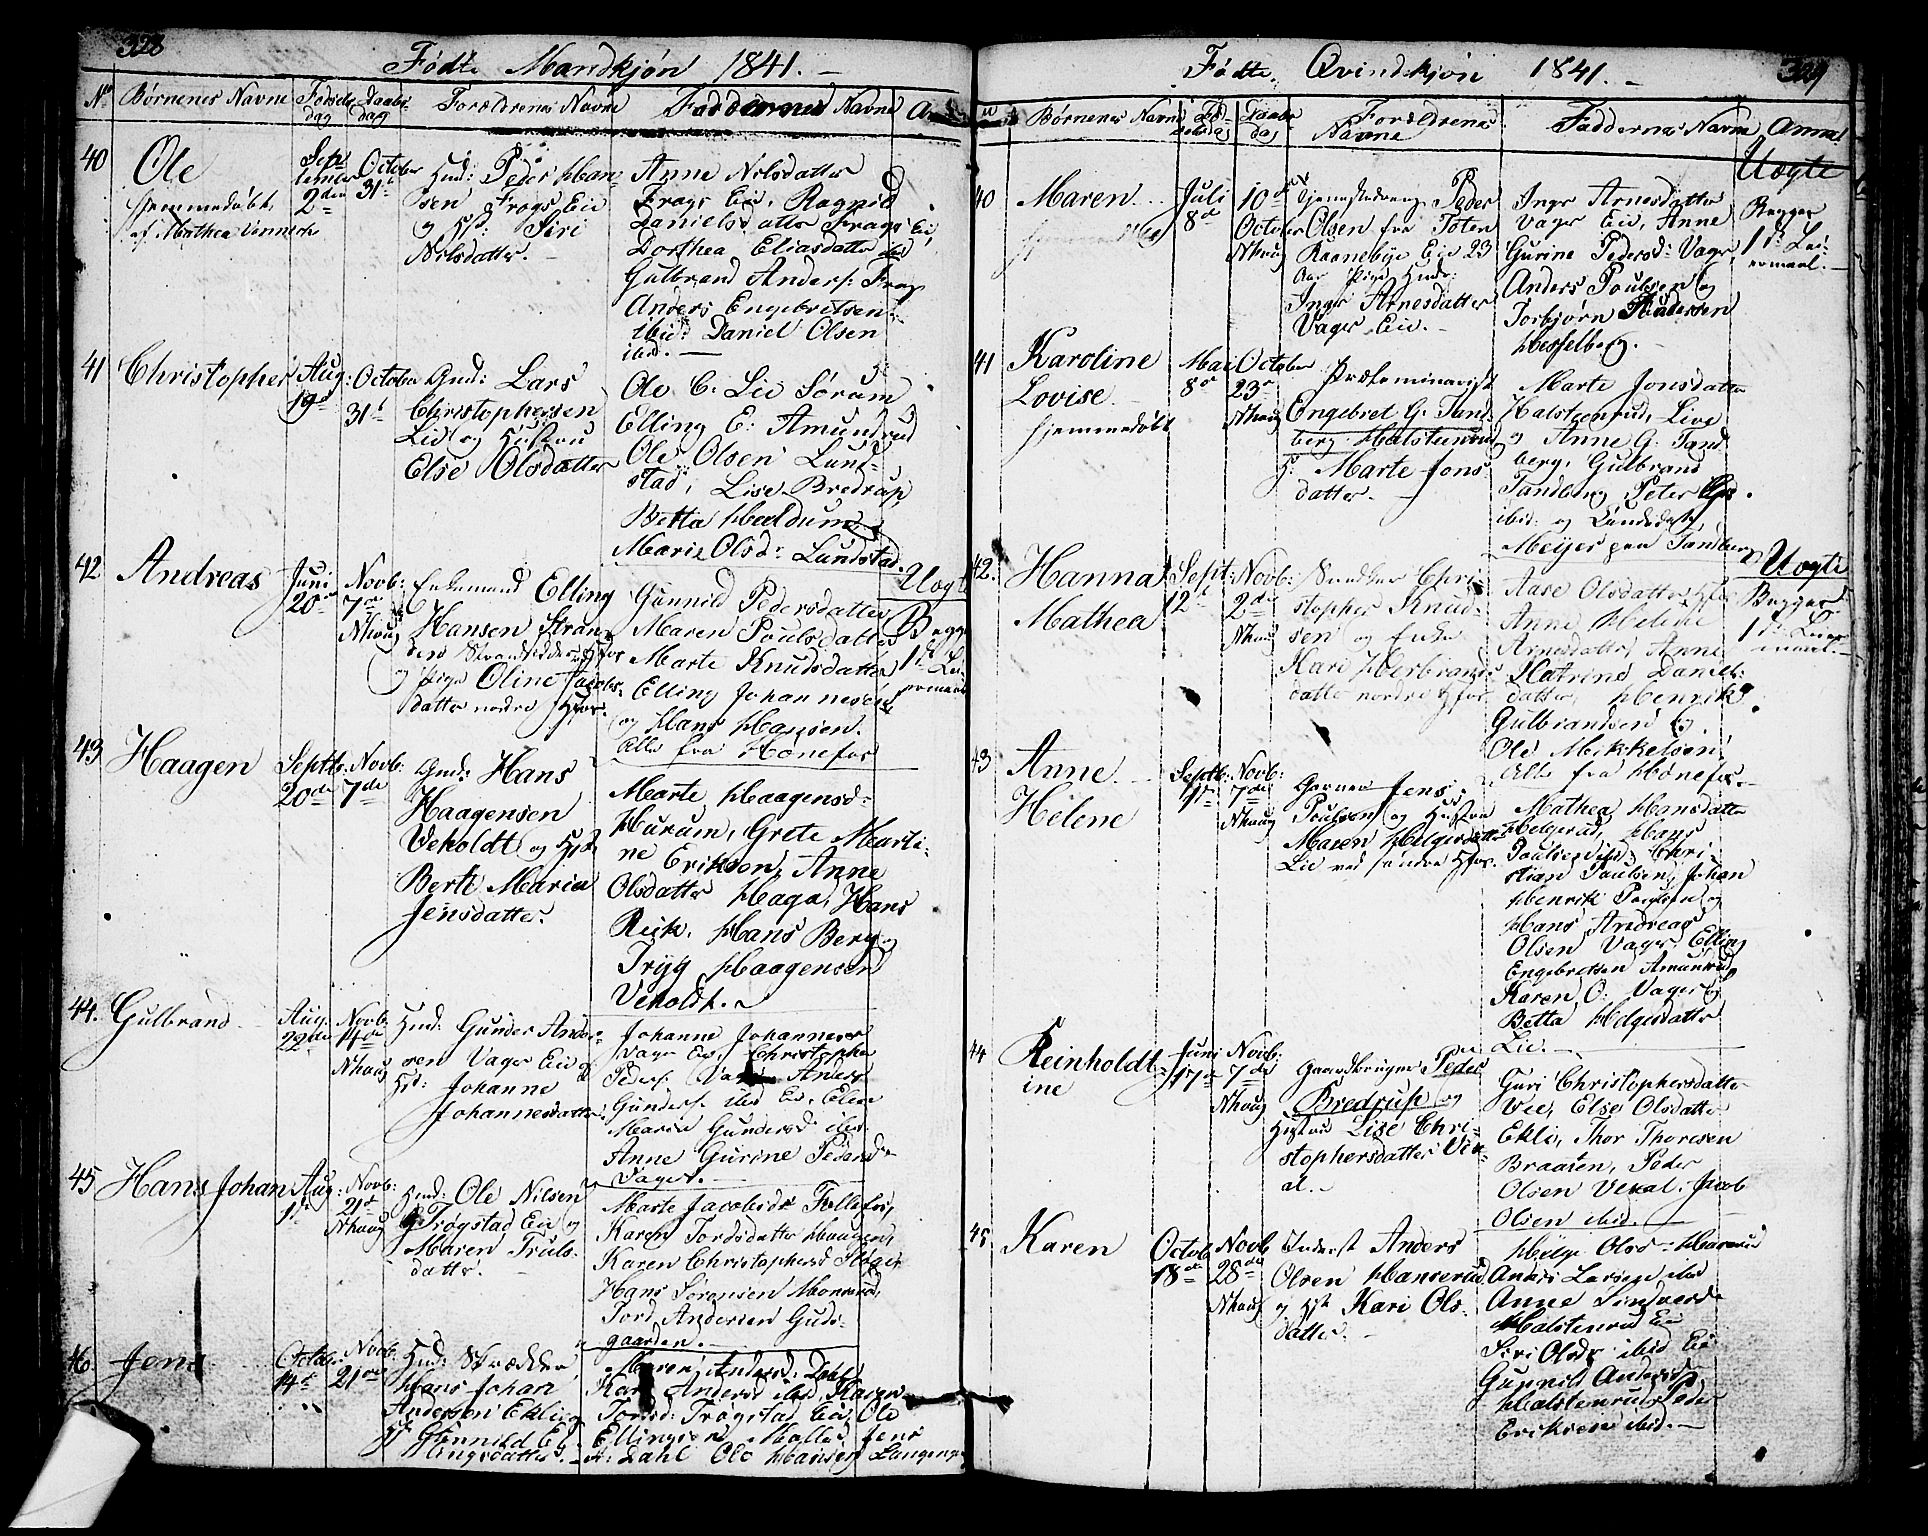 328
Fødte Mandkjøn 1841.
No Børnenes Navne Fødsels dag Daabs dag Forældrenes Navne Faddernes Navne
40 Ole
hjemmedøbt
af Mathea
September 2den
October 31t
Hmd: Peder Han-
sen Frogs Eie
og Hst: Siri
Nilsdatter.
Anne Nilsdatter
Frogs Eie, Ragnild
Danielsdatter Frogs Eie,
Dorthea Eliasdatter ibd
Gulbrand Anders: Frog
Anders Engebretsen
ibid: Daniel Olsen
ibd.
41 Christopher
Aug: 19d
October 31t
Gmd: Lars
Christophersen
Lie og Hustru
Else Olsdatter
Ole C. Lie Sørum
Elling E. Amundrud
Ole Olsen Lund-
stad, Lise Bredrup,
Betta Hueldum
Marie Olsd: Lundstad.
42 Andreas
Juni 20de
Novb: 7de
Nhoug
Enkemand Elling
Hansen Stran-
den
og Pige Oline Jacobs-
datter nordre Hfos.
Gunnild Pedersdatter
Maren Poulsdatter
Marte Knudsdatter
Elling Johannesen
og Hans Hansen.
Alle fra Hønefos
Uægte
Begges
1t Lei-
ermaal
43 Haagen
Septb: 20de
Novb: 7de
Gmd: Hans
Haagensen
Veholdt og Hst
Berte Maria
Jensdatter.
Marte Haagensd:
Hurum, Grete Marti-
ne Eriksen, Anne
Olsdatter Haga, Hans
Reik, Hans Berg og
Tryg Haagensen
Veholdt.
44. Gulbrand
Aug. 22de
Novb: 14de
Nhoug
Hmd: Gunder Ander-
sen Vager Eie og
Hst: Johanne
Johannesdatter.
Johanne Johannesd
Vager Eie, Christopher
Peders: Vager Anders
Gunders: ibd Eie, Elen
Maria Gundersd ibd.
Anne Gurine Pedersd
Vager.
45 Hans Johan
Aug: 1t
Novb: 21d
Nhoug
Hmd: Ole Nilsen
Trøgstad Eie og
Maren Truls-
datter.
Marte Jacobsdr Follefos,
Karen Tordsdatter Haugen,
Karen Christophersd
Hans Sørensen Monserud,
Tord Andersen Guds-
gaarden.
46 Jens
October 14d
Novb: 21de
Hmd: Skrædder
Hans Johan
Andersen Eklie og
Hst Gunnild El-
lingsdatter.
Maren Andersd: Dahl
Kari Andersd ibd, Karen
Tomsd: Trøgstad Eie, Ole
Ellingsen Jens
A: Dahl Ole Hansen
329
Fødte Qvindekjøn 1841.
Børnenes Navne Fødselsdag Daabs dag Forældrenes Navne Faddernes Navne Anm.
40 Maren
hjemmedøbt
Juli 8de
10de October
Nhoug
Tjenestedreng Peder
Olsen fra Toten
Raanebye Eie 23
Aar Pige Hmds:
Inger Arnesdatter
Vager Eie.
Inger Arnesdatter
Vager Eie, Anne
Gurine Pedersd: Vager,
Anders Poulsen og
Torbjørn
Hesselberg.
Uægte
Begges
1t Lei-
ermaal.
41 Karoline
Lovise
hjemmedøbt
Mai 8de
October 23d
Nhoug
Præleminarist
Engebret G. Tand-
berg Halsteenrud
H: Marte Jons-
datter.
Marte Jonsdatter
Halsteenrud, Live
og Anne G. Tand-
berg, Gulbrand
Tandberg Peter
ibid. og
Meijer paa Tandberg
42. Hanna
Mathea
Sept: 12t
Novb: 2de
Nhoug
Snedker Chri-
stopher Knud-
sen og Enke
Kari Herbrands-
datter nordre Hfos.
Aase Olsdatter Hfos
Anne Helene
Arnesdatter, Anne
Katrine Daniels-
datter, Henrik
Gulbrandsen og
Ole Mikkelsen.
Alle fra Hønefos.
Uægte
Begges
1t Leier-
maal.
43 Anne
Helene
Septb: 9de
Novb: 7de
Nhoug
Garver Jens
Poulsen og Hustru
Maren Helgesdatter
Lie ved søndre Hfos.
Mathea Hansdatter
Helgerud, Hans
Poulsen ibid, Chri-
stian Poulsen, Johan
Henrik Poulsen og
Hans Andreas
Olsen Vager, Elling
Engebretsen Amundrud
Karen O: Vager og
Betta Helgesdatter
Lie.
44 Reinholdt-
ine
Juni 17de
Novb: 7de
Nhoug
Gaardbruger Peder
Bredrup og
Hustru Lise Chri-
stophersdatter Vek-
al.
Guri Christophersdatter
Vee, Else Olsdatter
Ekli, Thor Thoresen
Braaten, Peder
Olsen Vekal. Jacob
Olsen ibid.
45 Karen
Octob 18de
Novb. 28de
Nhoug
Inderst Anders
Olsen Hanserud
og Hst Kari Ols-
datter.
Helge Olsd Hanserud
Anders Larsen ibid
Anne Sindresdr
Halstenrud Eie
Siri Olsdr ibid Eie
Gunnild Andersd
Halstenrud, Peder
Eriksen ibid.